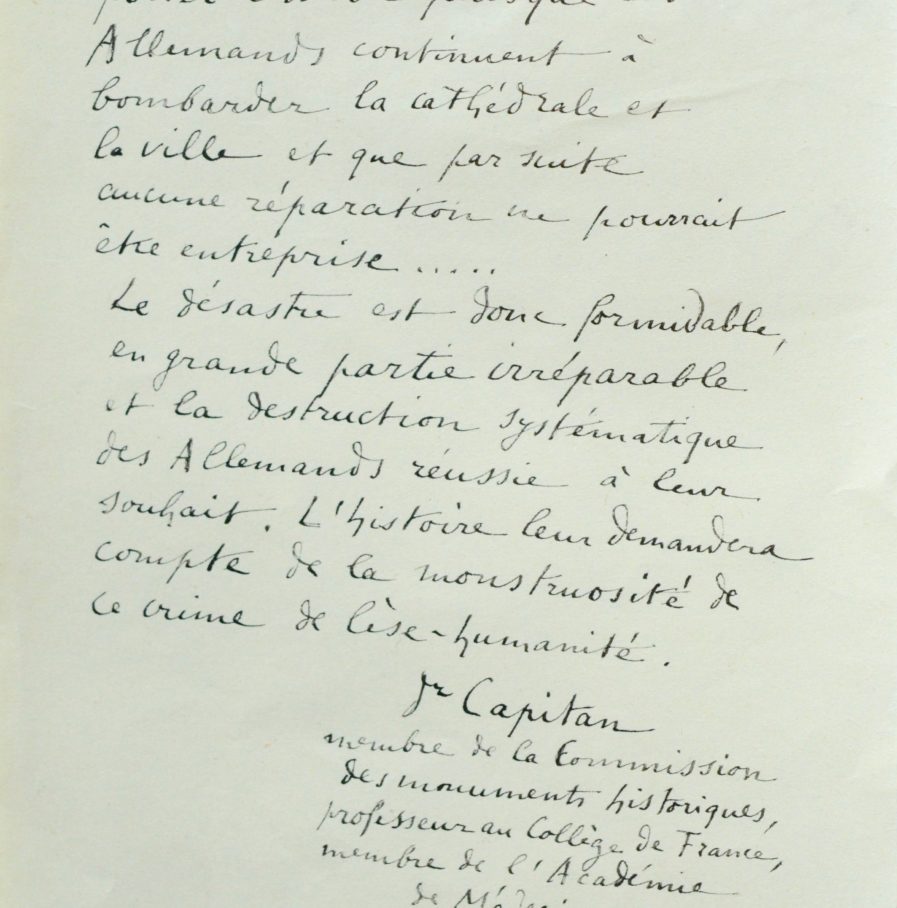 puisque les
Allemands continuent à
bombarder la cathédrale et
la ville et que par suite
aucune réparation ne pourrait
être entreprise .....
Le désastre est donc formidable,
en grande partie irréparable
et la destruction systématique
des Allemands réussie à leur
souhait. L'histoire leur demandera
compte de la monstruosité de
ce crime de lèse-humanité.
Dr Capitan
membre de la Commission
des monuments historiques,
professeur au Collège de France,
membre de l'Académie
de